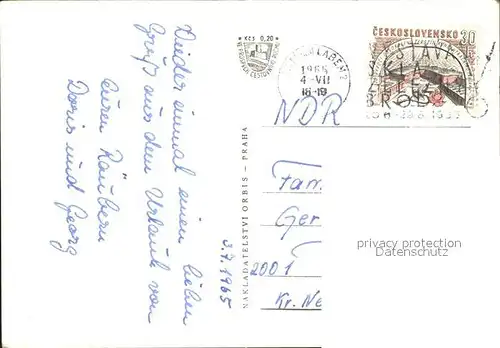 Wieder einmal einen lieben
Gruß aus dem Urlaub von
euren Räubern
Doris und Georg
3.7.1965
NAKLADATELSTVÍ ORBIS - PRAHA
Kčs 0,20
1965
4-VII
18-19
ČESKOSLOVENSKO 30
NDR
Fam.
Ger
2001
Kr. Ne
privacy protection
Datenschutz